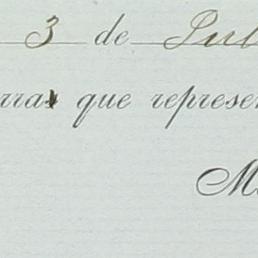 3 de Jul
rras que represen
M